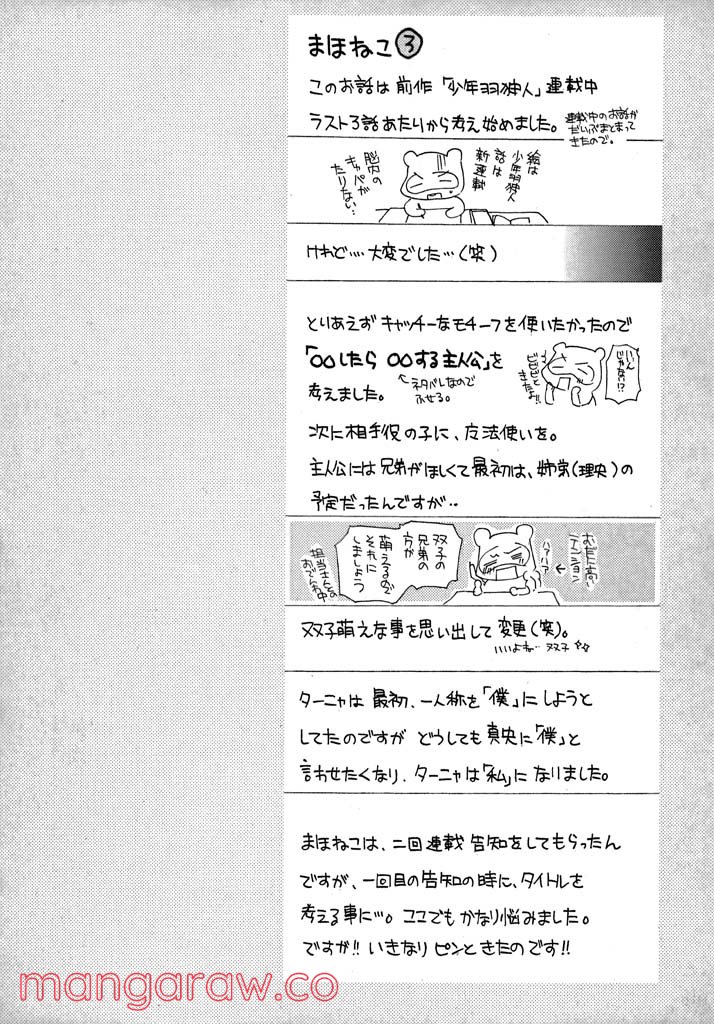 まほねこ③
このお話は前作「少年羽狩人」連載中
ラスト3話あたりから考え始めました。
連載中のお話が
だいぶまとまって
きたので。
絵は
少年羽狩人
話は
新連載
脳内の
キャパが
たりない…
けれど…大変でした…(笑)
とりあえずキャッチーなモチーフを使いたかったので
「〇〇したら〇〇する主人公」を
考えました。
←ネタバレなので
ふせる。
いいん
じゃない!?
ビビビと
きたよ!!
次に相手役の子に、魔法使いを。
主人公には兄弟がほしくて最初は、姉弟(理央)の
予定だったんですが‥
むだに高
テンション
←
ハァハァ
双子の
兄弟の
方が
萌えるので
それに
しましょう
担当さんと
おでんわ中
双子萌えな事を思い出して変更(笑)。
いいよね… 双子☆☆
ターニャは最初、一人称を「僕」にしようと
してたのですがどうしても真央に「僕」と
言わせたくなり、ターニャは「私」になりました。
まほねこは、二回連載告知をしてもらったん
ですが、一回目の告知の時に、タイトルを
考える事に…。ココでもかなり悩みました。
ですが!!いきなりピンときたのです!!
mangaraw.co